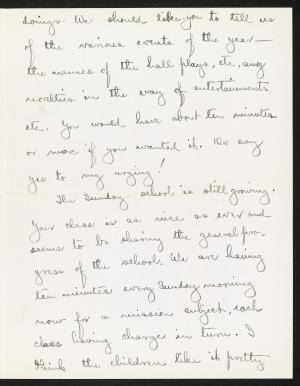 doings. We should like you to tell us
of the various events of the year—
the names of the hall plays, etc, any
novelties in the way of entertainments,
etc. You would have about ten minutes
or more if you wanted it. Do say
yes to my urging!
The Sunday-school is still growing.
Your class is as nice as ever and
seems to be sharing the general pro-
gress of the school. We are having
ten minutes every Sunday morning
now for a mission subject, each
class having charge in turn. I
think the children like it pretty